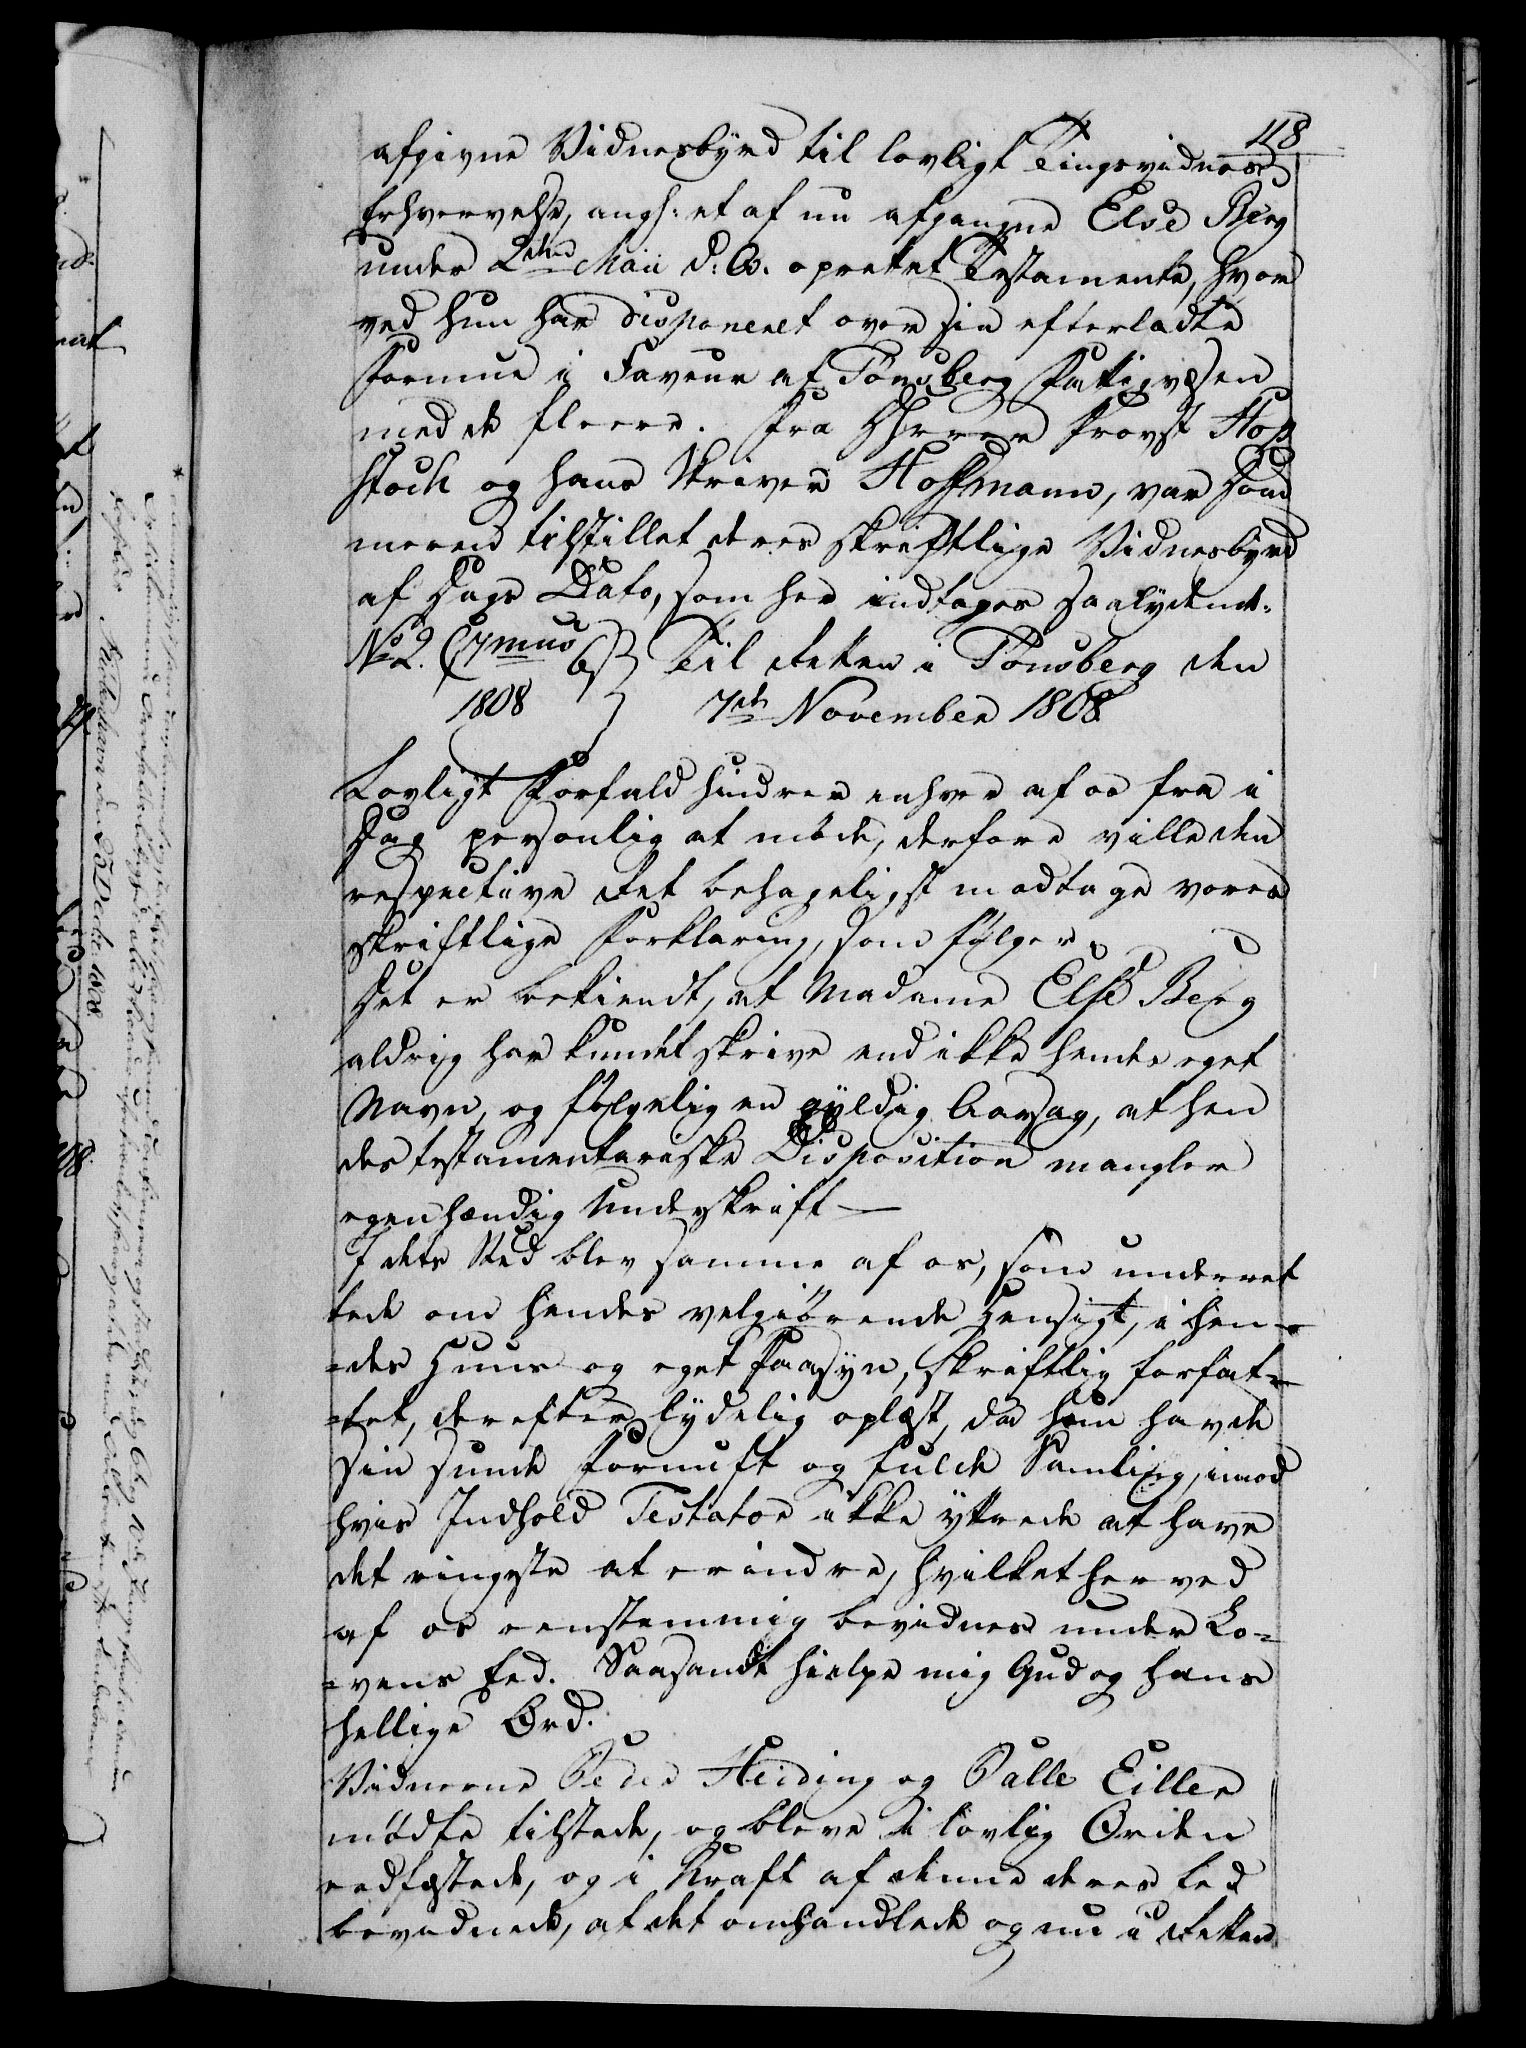 118
afgivne Vidnesbyrd til lovligt Tingsvidnes
Erhvervelse, angh: et af nu afgangne Else Berg
under 2den Maii d: A: oprettet Testamente, hvor
ved hun har disponeret over sin efterladte
Formue i Faveur af Tønsberg Fattigvæsen
med de fleere. Fra Hrrer Provst Hop
stock og hans Skriver Hoffmann, var Dom
meren tilstillet deres skriftlige Vidnesbyrd
af Dags Dato, som her indtages saalydende:
No 2. C7mus 6s Til Retten i Tønsberg den
1808 7de November 1808.
Lovligt Forfald hindrer enhver af os fra i
Dag personlig at møde, derfore ville den
respective Ret behageligst modtage vores
skriftlige Forklaring, som følger
Det er bekiendt, at Madame Else Berg
aldrig har kundet skrive end ikke hendes eget
Navn, og følgelig en gyldig Aarsag, at hen
des testamentariske Disposition mangler
egenhændig Underskrift —
I dets Sted blev samme af os, som underret
tede om hendes velgiørende Hensigt, i hen-
-des Huus og eget Paasyn, skriftlig forfat-
-tet, derefter lydelig oplæst, da hun havde
sin sunde Fornuft og fulde Samling, imod
hvis Indhold Testator ikke yttrede at have
det ringeste at erindre, hvilket herved
af os eenstemmig bevidnes under Lo-
-vens Eed. Saasandt hielpe mig Gud og hans
hellige Ord.
Vidnerne Peder Heiding og Palle Eiller
mødte tilstede, og bleve i lovlig Orden
eedfæstede, og i Kraft af denne deres Eed
bevidnede, at det omhandlede og nu i Retten